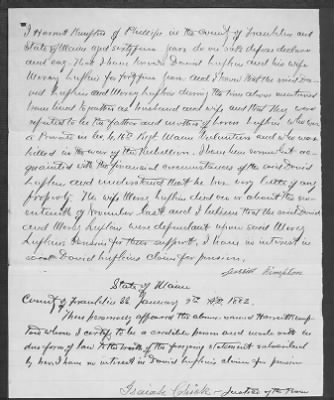 I Harriet Kimpton of Phillips in the County of Franklin and
State of Maine aged sixty five years do on oath depose declare
and say that I have known David Lufkin and his wife
Mercy Lufkin for forty five years and I know that the said David
Lufkin and Mercy Lufkin during the time above mentioned
have lived together as husband and wife and that they were
reputed to be the father and mother of Loren Lufkin who was
a Private in Co. 4, 16th Regt Maine Volunteers and who was
killed in the war of the Rebellion. I have been somewhat ac-
quainted with the financial circumstances of the said David
Lufkin and understand that he has very little if any
property. The wife Mercy Lufkin died on or about the
seventeenth of November last and I believe that the said David
and Mercy Lufkin were dependent upon said
Lufkins Pension for their support. I have no interest in
said David Lufkins claim for pension.
Harriet Kimpton
State of Maine
County of Franklin SS January 9th AD. 1882.
Then personally appeared the above named Harriet Kimp-
ton whom I certify to be a credible person and made oath in
due form of law to the truth of the foregoing statement subscribed
by her. I have no interest in David Lufkins claim for pension
Isaiah Chick - Justice of the Peace